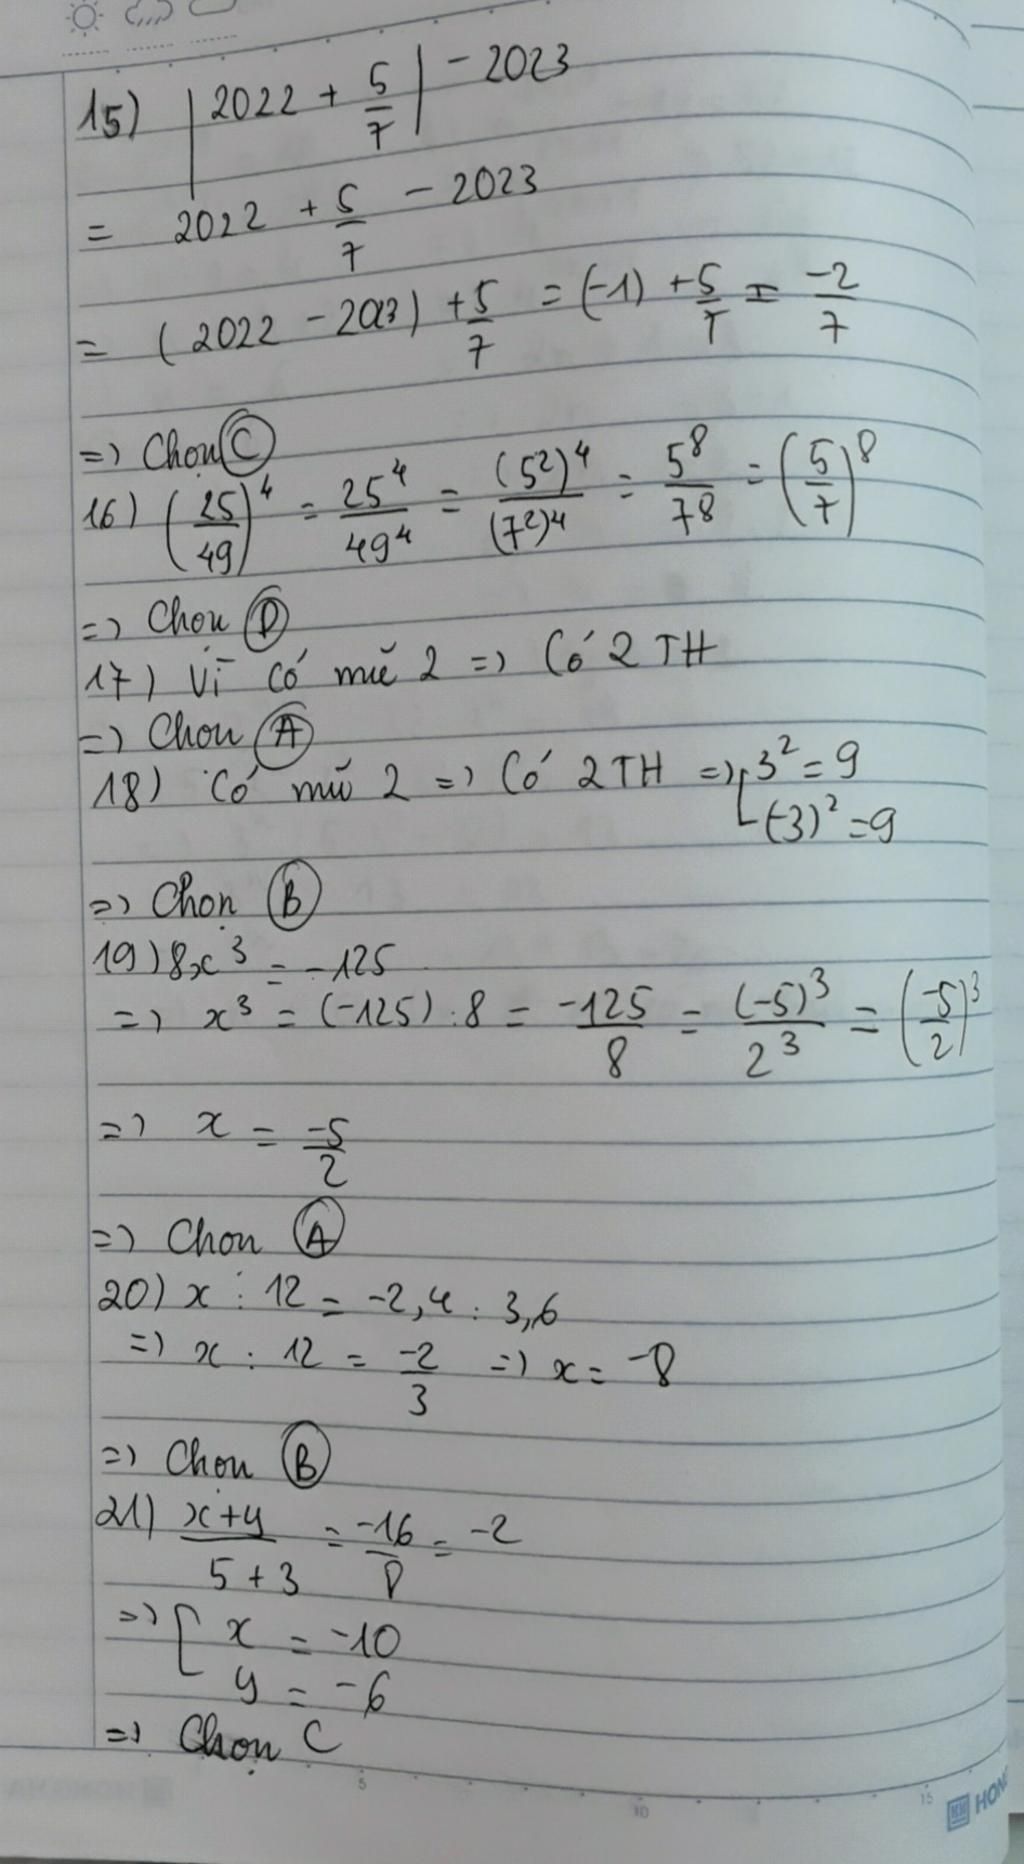 15) |2022 + 5/7| - 2023
= 2022 + 5/7 - 2023
= (2022 - 2023) + 5/7 = (-1) + 5/7 = -2/7
=> Chọn C
16) (25/49)^4 = 25^4/49^4 = (5^2)^4/(7^2)^4 = 5^8/7^8 = (5/7)^8
=> Chọn D
17) Vì có mũ 2 => Có 2 TH
=> Chọn A
18) Có mũ 2 => Có 2 TH => [ 3^2 = 9
(-3)^2 = 9
=> Chọn B
19) 8x^3 = -125
=> x^3 = (-125) : 8 = -125/8 = (-5)^3/2^3 = (-5/2)^3
=> x = -5/2
=> Chọn A
20) x : 12 = -2,4 : 3,6
=> x : 12 = -2/3 => x = -8
=> Chọn B
21) x+y/5+3 = -16/8 = -2
=> [ x = -10
y = -6
=> Chọn C
5 10 15
HON